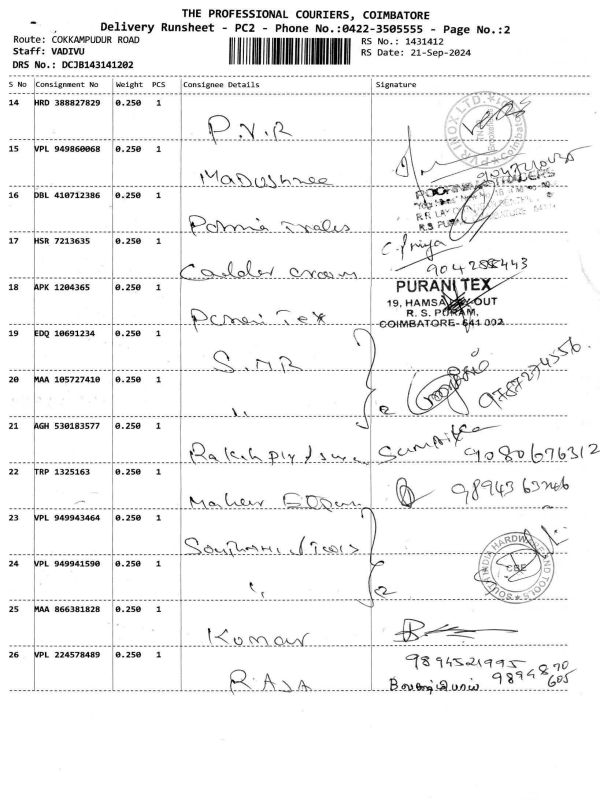 THE PROFESSIONAL COURIERS, COIMBATORE
Delivery Runsheet - PC2 - Phone No.:0422-3505555 - Page No.:2
Route: COKKAMPUDUR ROAD
RS No.: 1431412
Staff: VADIVU
RS Date: 21-Sep-2024
DRS No.: DCJB143141202
S No Consignment No Weight PCS Consignee Details Signature
14 HRD 388827829 0.250 1
P.V.R
15 VPL 949860068 0.250 1
Madushnee
16 DBL 410712386 0.250 1
17 HSR 7213635 0.250 1
C. Priya
9042555443
18 APK 1204365 0.250 1
PURANI TEX
19, HAMSA LAYOUT
R. S. PURAM,
COIMBATORE- 641 002
Purani Tex
19 EDQ 10691234 0.250 1
S.M.R
9787274556
20 MAA 105727410 0.250 1
"
2
21 AGH 530183577 0.250 1
9080676312
22 TRP 1325163 0.250 1
23 VPL 949943464 0.250 1
SOUTH INDIA HARDWARE AND TOOLS
CBE
24 VPL 949941590 0.250 1
"
2
25 MAA 866381828 0.250 1
Kumar
26 VPL 224578489 0.250 1
9894521995
RAJA